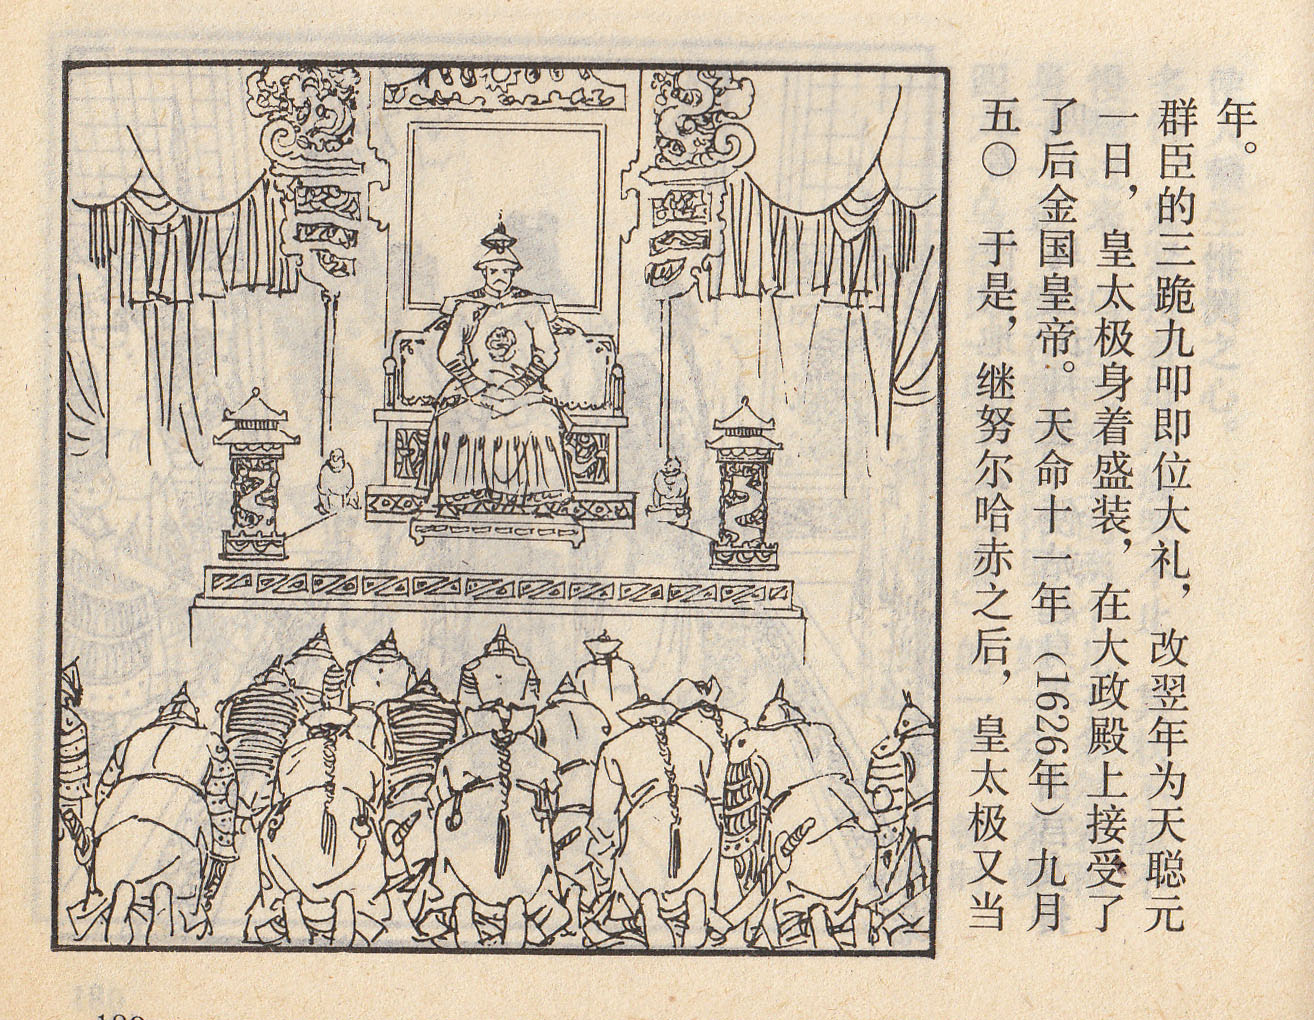 五〇 于是，继努尔哈赤之后，皇太极又当
了后金国皇帝。天命十一年（1626年）九月
一日，皇太极身着盛装，在大政殿上接受了
群臣的三跪九叩即位大礼，改翌年为天聪元
年。